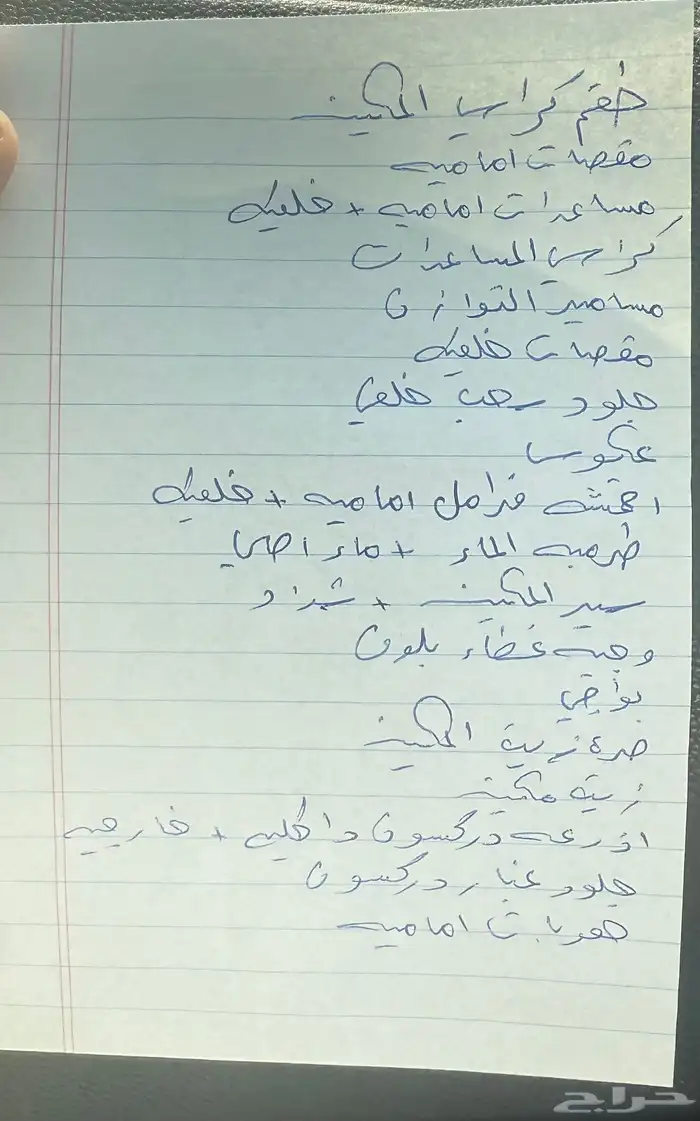 طقم كراسي المكينه
مقصات اماميه
مساعدات اماميه + خلفيه
كراسي المساعدات
مسامير التوازن
مقصات خلفيه
جلود سحب خلفي
عكوسا
اقمشه فرامل اماميه + خلفيه
طرمبه الماء + ماء اصلي
سير المكينه + شداد
وجيه غطاء بلوف
بواجي
صرة زيت المكينه
زيت مكينه
اذرعه دركسون داخليه + خارجيه
جلود غبار دركسون
هوبات اماميه
حراج